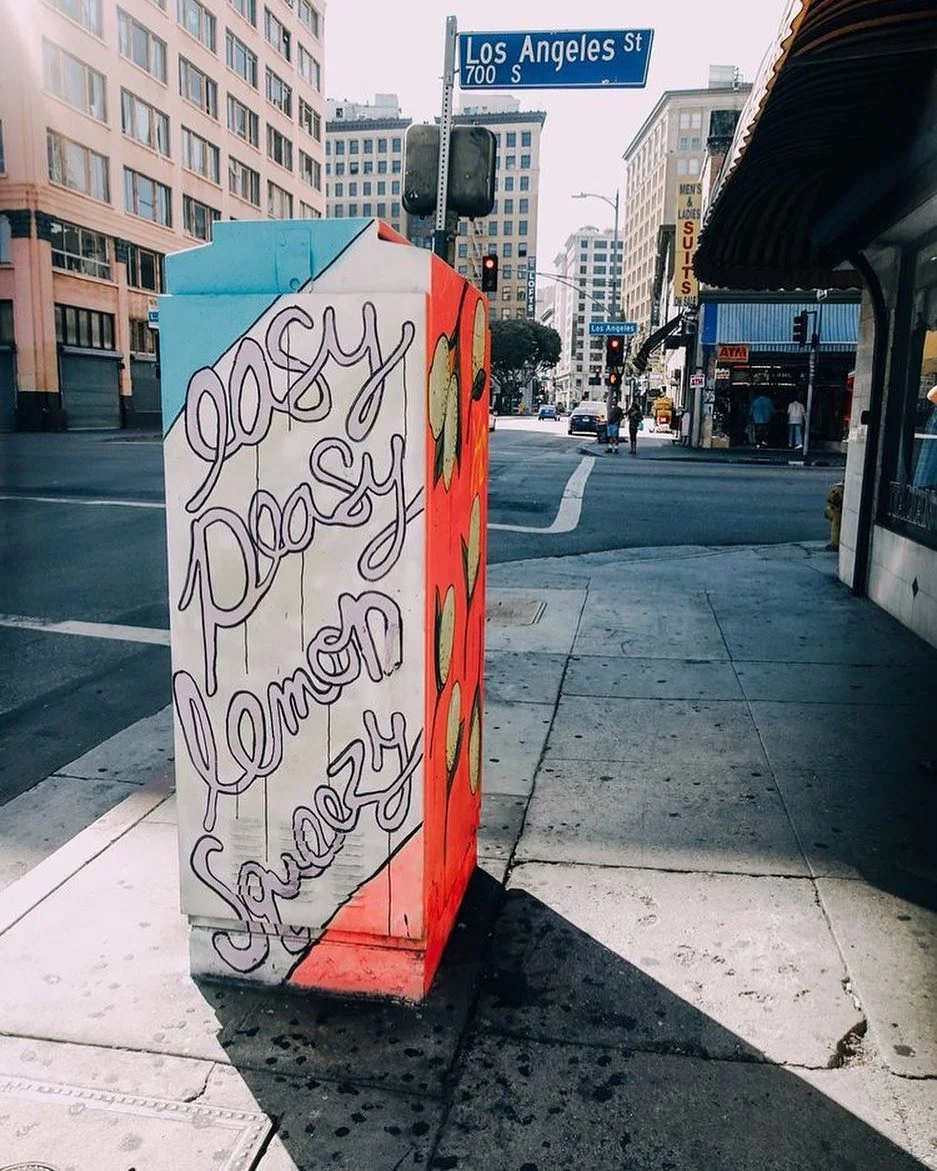 Los Angeles St
700 S
MEN'S
&
LADIES
SUITS
Los Angeles
ATM
easy
peasy
lemon
squeezy